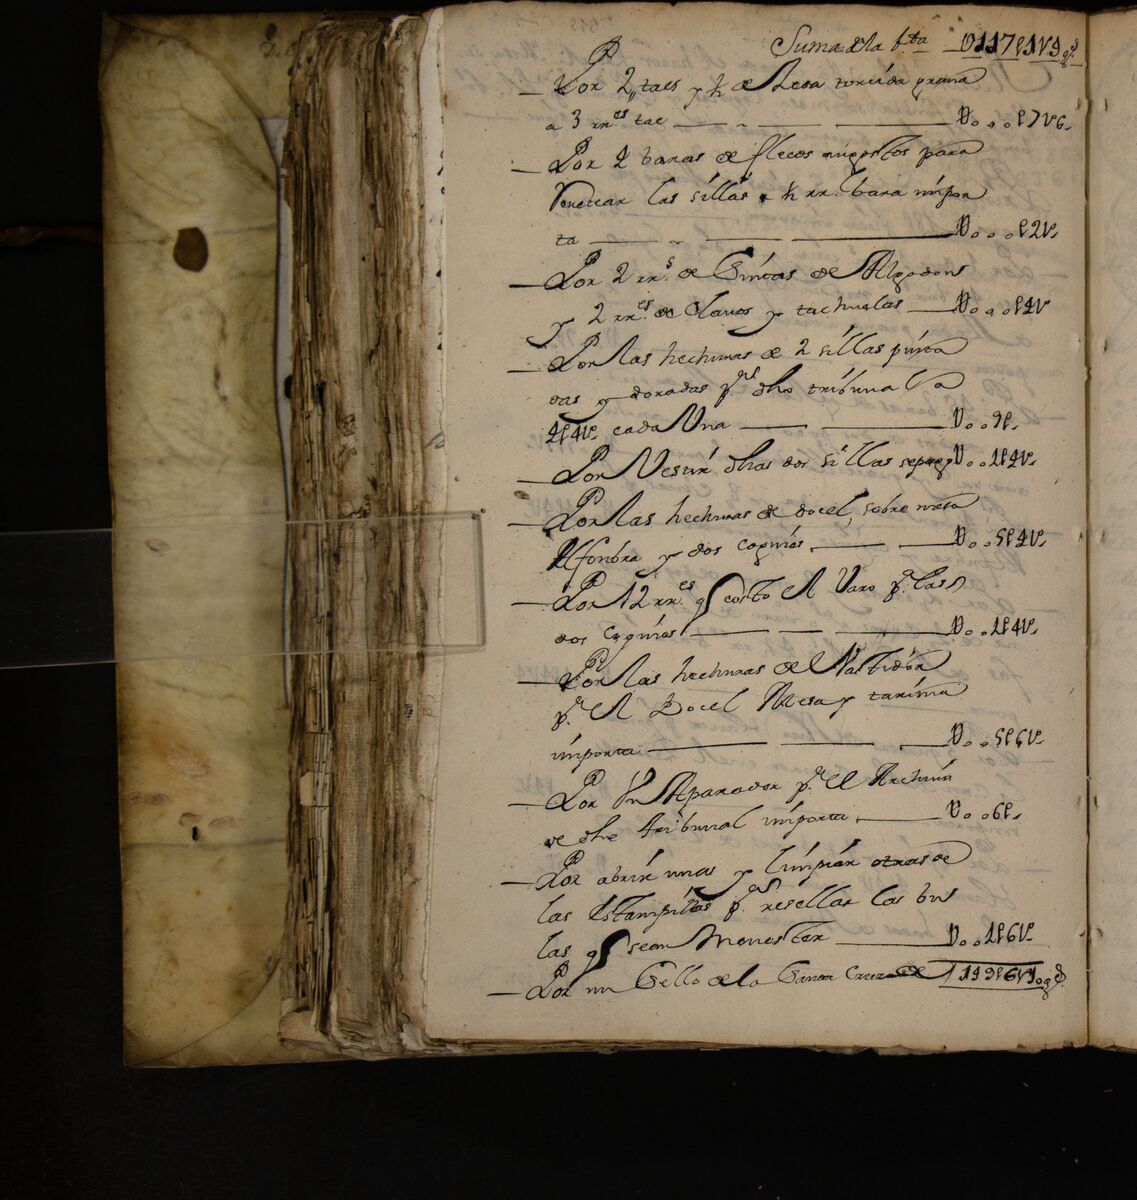 Suma de la bta U117p1v9gs
Por 2 taes y ½ de Seda torcida grana
a 3 rr.es tae U..p7v6
Por 2 baras de flecos angostos para
las sillas a ½ rr. bara impor
ta U...p2v
Por 2 rr.s de Cintas de Algodon
y 2 rr.es de Clavos y tachuelas U...p4v
Por las hechuras de 2 sillas pinta
das y doradas p.a dho tribunal a
4p4v cada Una U..9p
Por Vestir dhas dos sillas se pagó U..1p4v
Por las hechuras de docel, sobre mesa
Alfonbra y dos coginis U..5p4v
Por 12 rr.es q costo el para las
dos coginis U..1p4v
Por las hechuras de
p.a el Docel Mesa y tarima
importa U..5p5v
Por Un Aparador p.a el Archiuo
de dho tribunal importa U..6p
Por abrir unas y limpiar otras de
las Estampillas p.a resellar las bu
las q sean Menester U..1p6v
Por un Sello de la Santa Cruzada